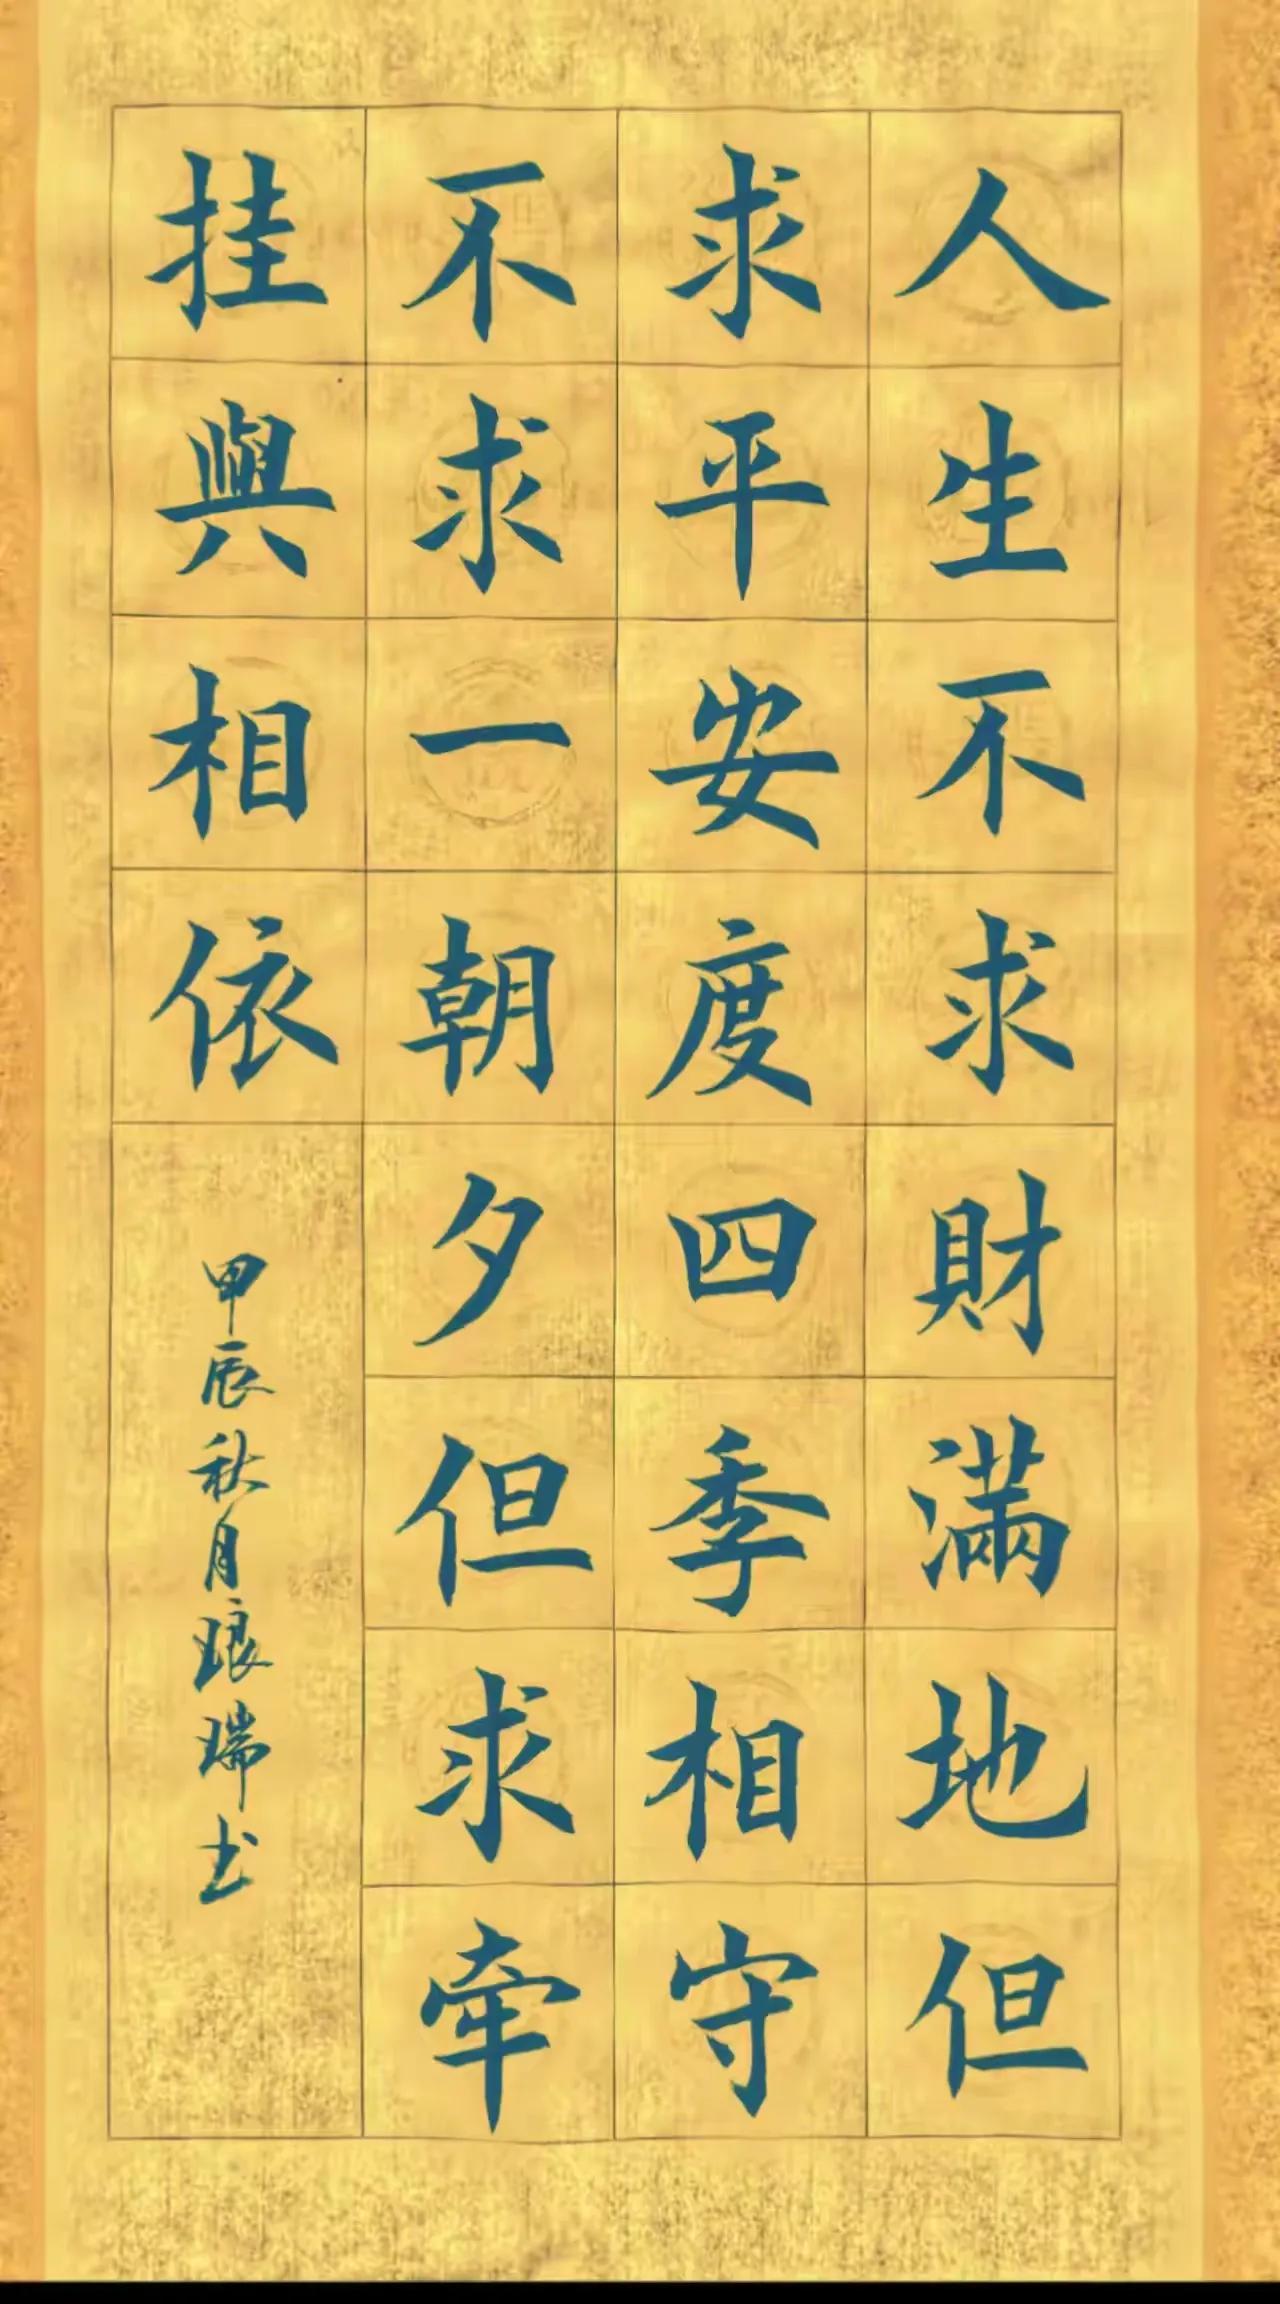 人生不求財滿地但
求平安度四季相守
不求一朝夕但求牽
挂與相依
甲辰秋月琅瑞书